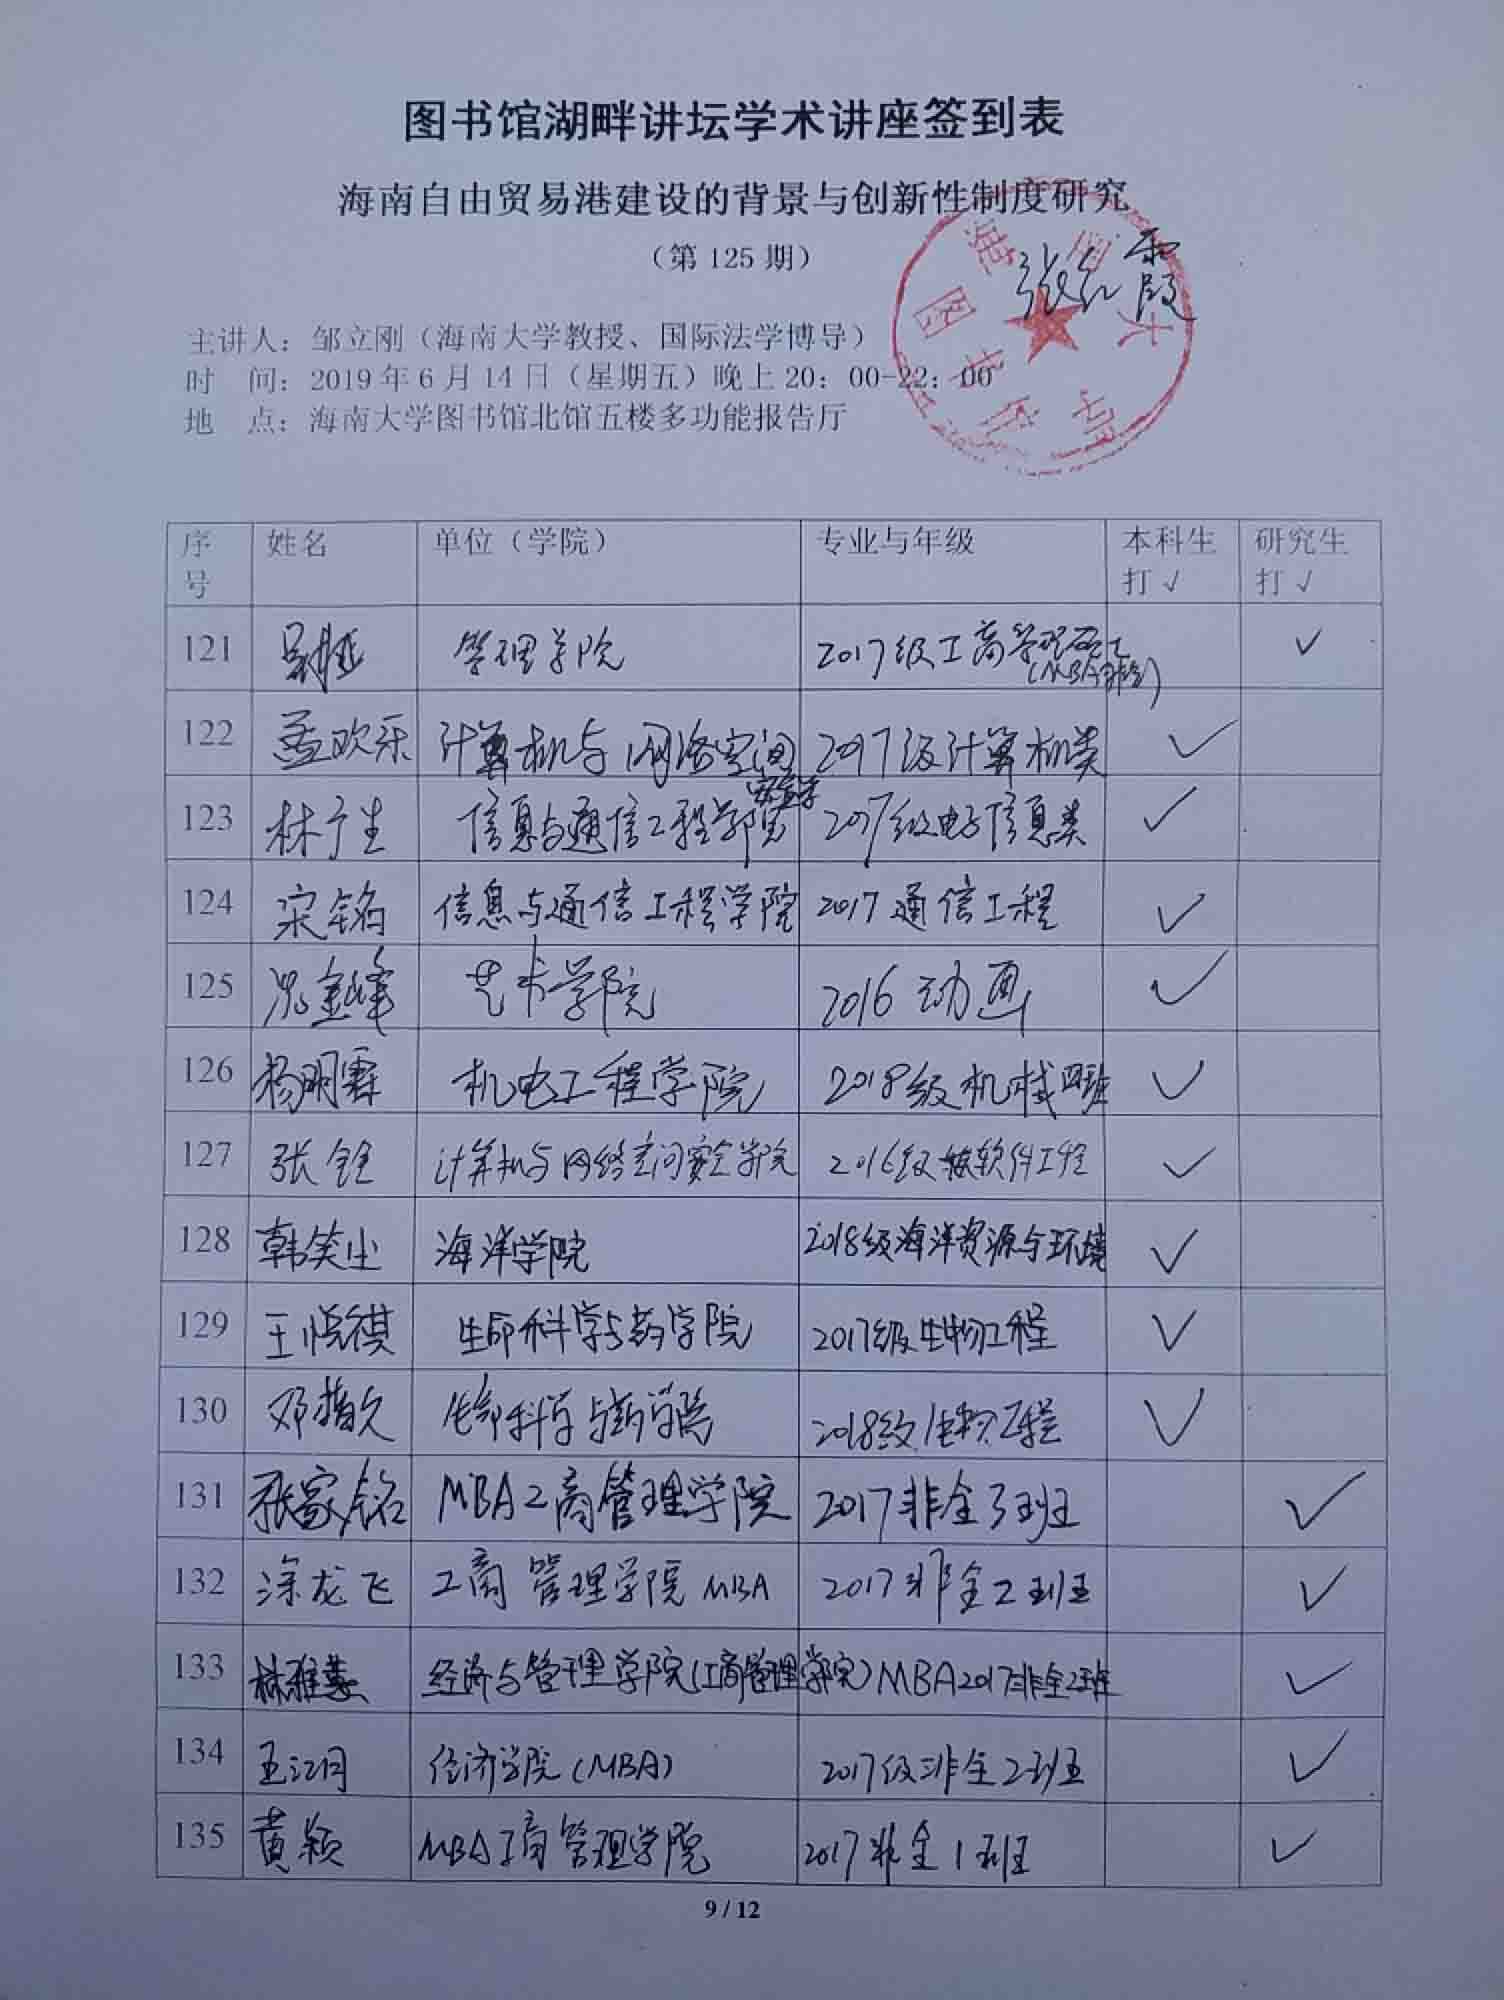 图书馆湖畔讲坛学术讲座签到表
海南自由贸易港建设的背景与创新性制度研究
（第 125 期）
张红霞
主讲人：邹立刚（海南大学教授、国际法学博导）
时 间：2019 年 6 月 14 日（星期五）晚上 20：00-22：00
地 点：海南大学图书馆北馆五楼多功能报告厅
序号 姓名 单位（学院） 专业与年级 本科生打√ 研究生打√
121 管理学院 2017级工商管理硕士(MBA非全) ✓
122 孟欢乐 计算机与网络空间安全学 2017级计算机类 ✓
123 林广生 信息与通信工程学院 2017级电子信息类 ✓
124 宋铭 信息与通信工程学院 2017通信工程 ✓
125 金峰 艺术学院 2016动画 ✓
126 杨明霖 机电工程学院 2018级机械四班 ✓
127 张铨 计算机与网络空间安全学院 2016级软件工程 ✓
128 韩笑尘 海洋学院 2018级海洋资源与环境 ✓
129 王悦祺 生命科学与药学院 2017级生物工程 ✓
130 邓 久 生命科学与药学院 2018级生物工程 ✓
131 张家铭 MBA工商管理学院 2017非全3班 ✓
132 涂龙飞 工商管理学院MBA 2017非全2班 ✓
133 林雅慧 经济与管理学院(工商管理学院) MBA2017非全2班 ✓
134 王江月 经济学院(MBA) 2017级非全2班 ✓
135 黄颖 MBA工商管理学院 2017非全1班 ✓
9 / 12